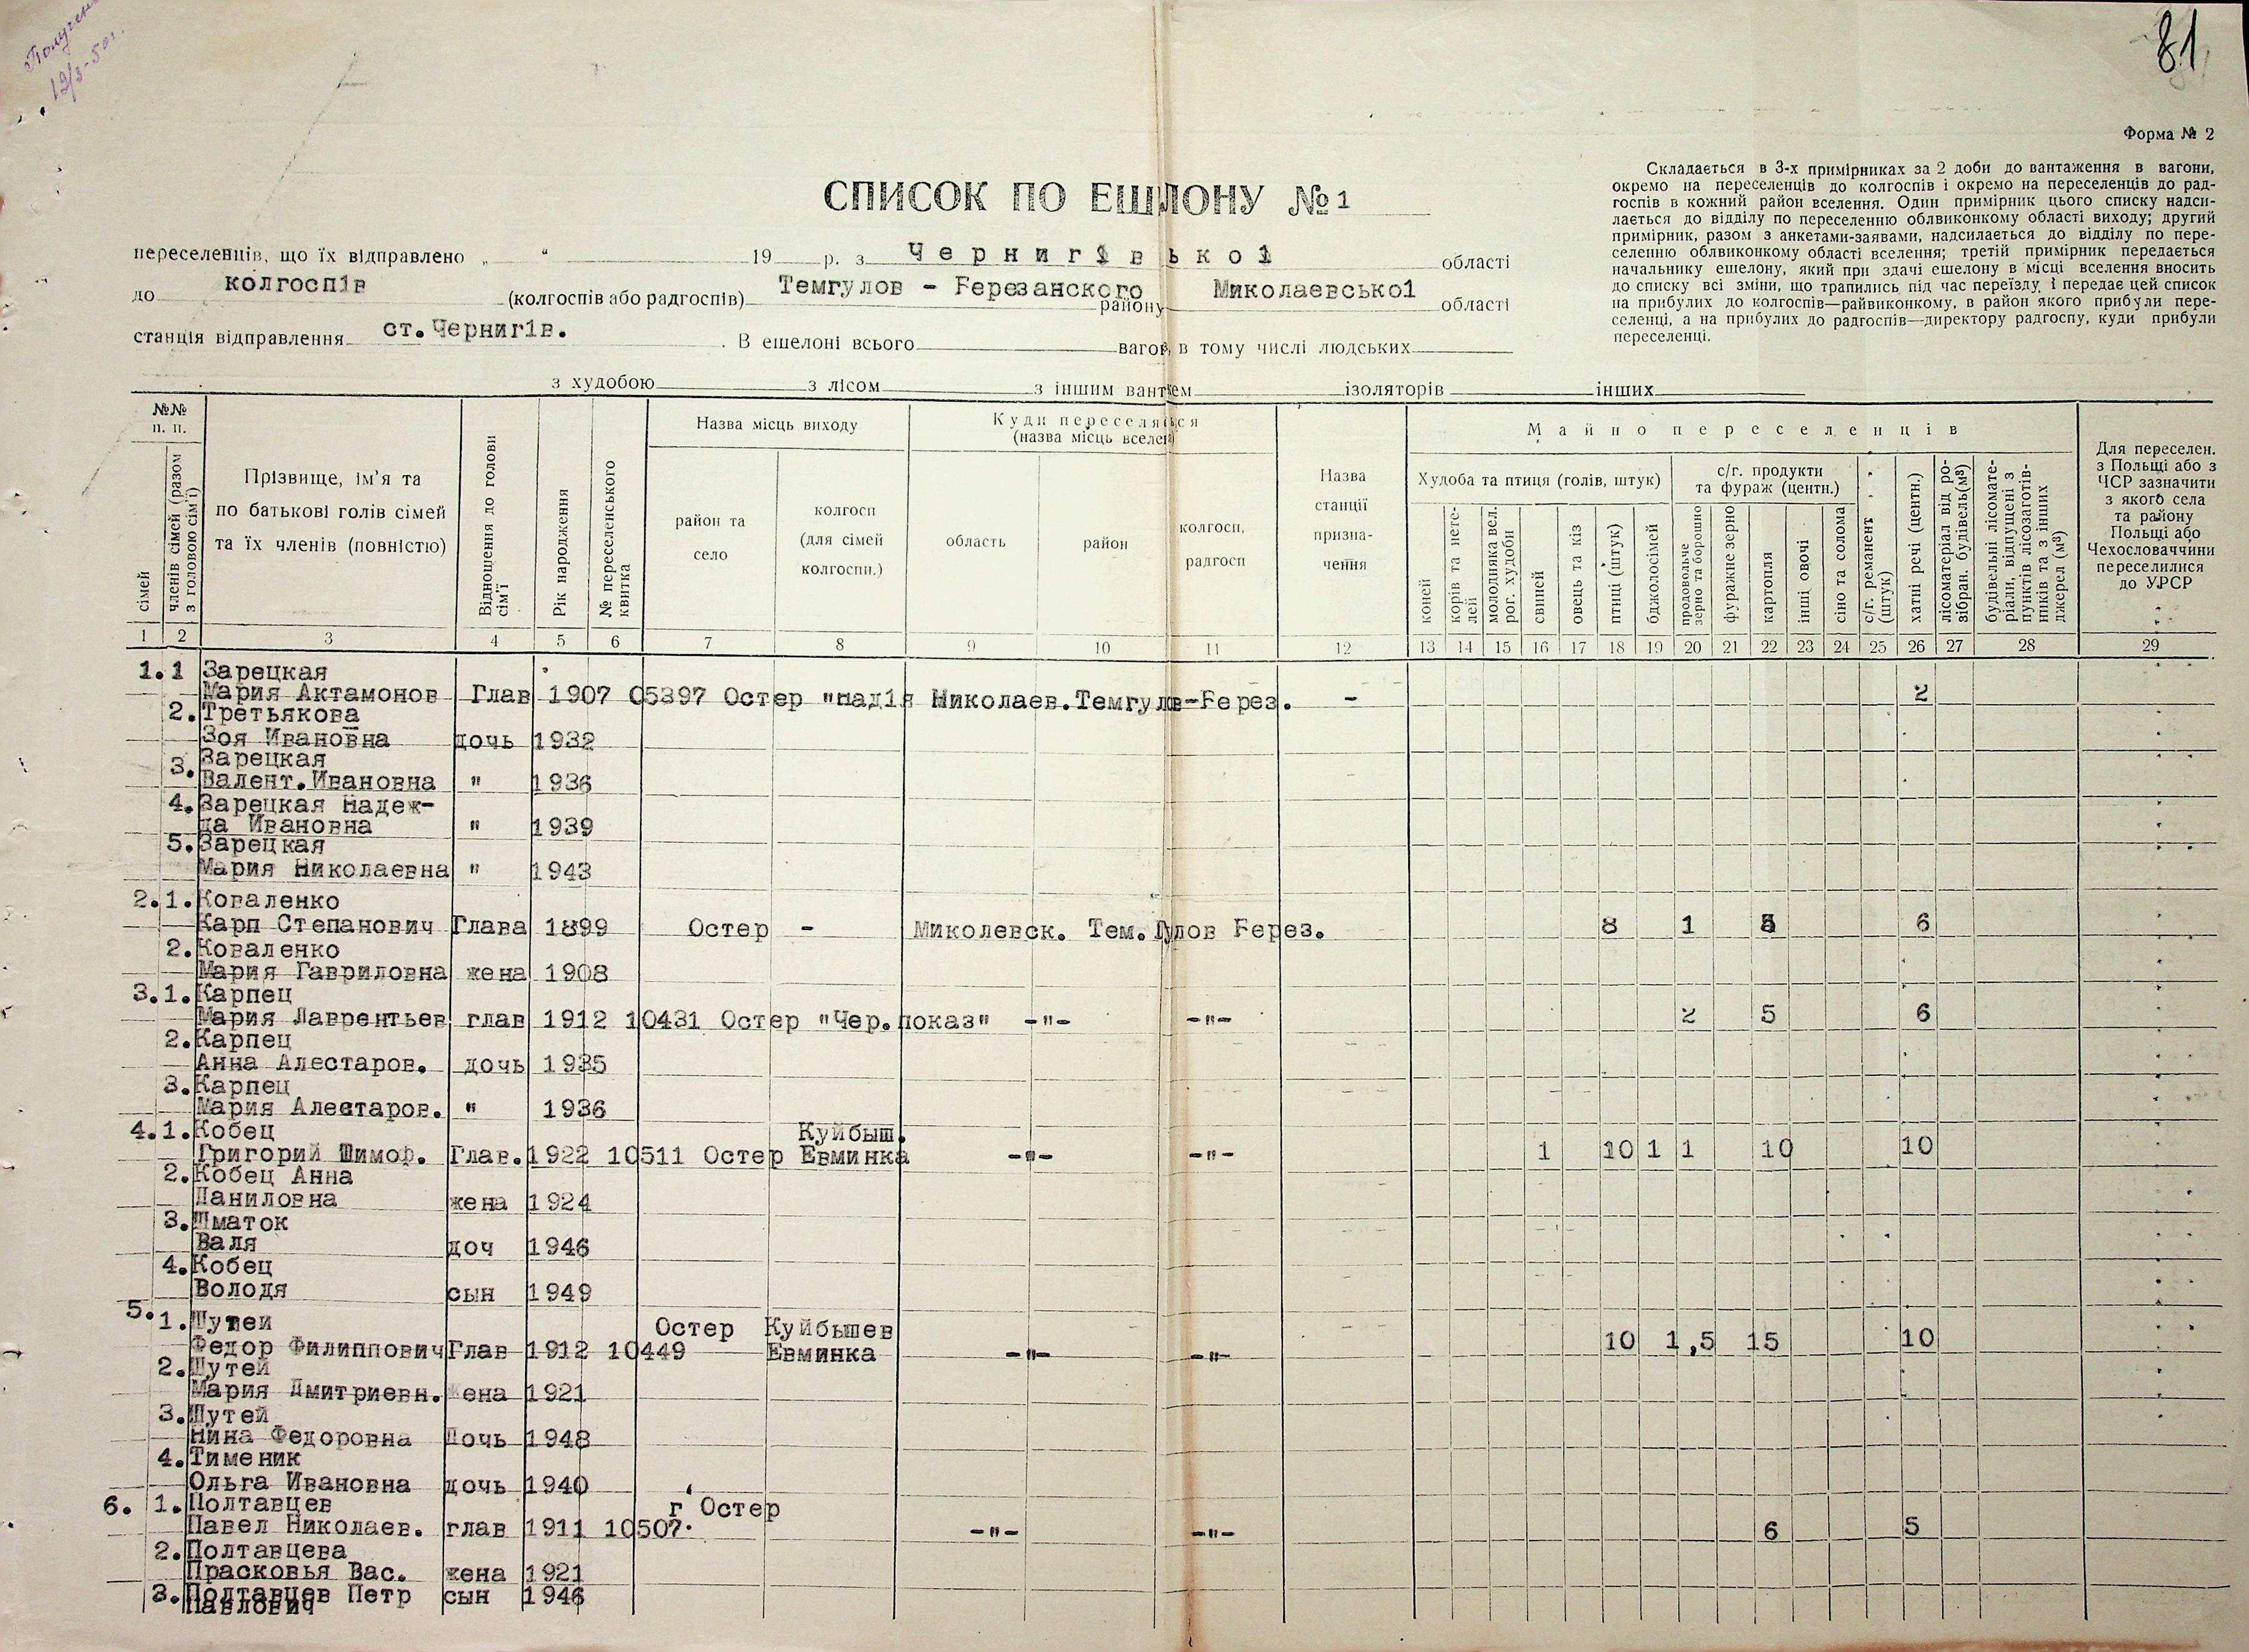 Получен
19/3-50г.
81
Форма № 2
Складається в 3-х примірниках за 2 доби до вантаження в вагони,
окремо на переселенців до колгоспів і окремо на переселенців до рад-
госпів в кожний район вселення. Один примірник цього списку надси-
лається до відділу по переселенню облвиконкому області виходу; другий
примірник, разом з анкетами-заявами, надсилається до відділу по пере-
селенню облвиконкому області вселення; третій примірник передається
начальнику ешелону, який при здачі ешелону в місці вселення вносить
до списку всі зміни, що трапились під час переїзду, і передає цей список
на прибулих до колгоспів—райвиконкому, в район якого прибули пере-
селенці, а на прибулих до радгоспів—директору радгоспу, куди прибули
переселенці.
СПИСОК ПО ЕШЛОНУ № 1
переселенців, що їх відправлено „ “ 19 р. з Чернигівької області
до колгоспів (колгоспів або радгоспів) Темгулов - Березанского району Миколаевської області
станція відправлення ст.Чернигів. В ешелоні всього вагов, в тому числі людських
з худобою з лісом з іншим вантжем ізоляторів інших
№№ п. п.
сімей
членів сімей (разом з головою сім'ї)
Прізвище, ім’я та
по батькові голів сімей
та їх членів (повністю)
Відношення до голови сім'ї
Рік народження
№ переселенського квитка
Назва місць виходу
район та
село
колгосп
(для сімей
колгоспн.)
Куди переселяються
(назва місць вселен
область
район
колгосп,
радгосп
Назва
станції
призна-
чення
Майно переселенців
Худоба та птиця (голів, штук)
коней
корів та нете-
лей
молодняка вел.
рог. худоби
свиней
овець та кіз
птиці (штук)
бджолосімей
с/г. продукти
та фураж (центн.)
продовольче
зерно та борошно
фуражне зерно
картопля
інші овочі
сіно та солома
с/г. реманент
(штук)
хатні речі (центн.)
лісоматеріал від ро-
зібран. будівель(м³)
будівельні лісомате-
ріали, відпущені з
пунктів лісозаготів-
ників та з інших
джерел (м³)
Для переселен.
з Польщі або з
ЧСР зазначити
з якого села
та району
Польщі або
Чехословаччини
переселилися
до УРСР
1 2 3 4 5 6 7 8 9 10 11 12 13 14 15 16 17 18 19 20 21 22 23 24 25 26 27 28 29
1.1 Зарецкая
Мария Актамонов Глав 1907 05397 Остер "надія Николаев.Темгулв-Берез. - 2
2. Третьякова
Зоя Ивановна дочь 1932
3. Зарецкая
Валент.Ивановна " 1936
4. Зарецкая Надеж-
да Ивановна " 1939
5. Зарецкая
Мария Николаевна " 1943
2.1. Коваленко
Карп Степанович Глава 1899 Остер - Миколевск. Тем.Гулов Берез. 8 1 6
2. Коваленко
Мария Гавриловна жена 1908
3.1. Карпец
Мария Лаврентьев глав 1912 10431 Остер "Чер.показ" -"- -"- 2 5 6
2. Карпец
Анна Алестаров. дочь 1935
3. Карпец
Мария Алестаров. " 1936
4.1. Кобец Куйбыш.
Григорий Шимоф. Глав. 1922 10511 Остер Евминка -"- -"- 1 10 1 1 10 10
2. Кобец Анна
Даниловна жена 1924
3. Шматок
Валя доч 1946
4. Кобец
Володя сын 1949
5. 1. Шутей Остер Куйбышев
Федор Филиппович Глав 1912 10449 Евминка -"- -"- 10 1,5 15 10
2. Шутей
Мария Дмитриевн. жена 1921
3. Шутей
Нина Федоровна Дочь 1948
4. Тименик
Ольга Ивановна дочь 1940
6. 1. Полтавцев г Остер
Павел Николаев. глав 1911 10507. -"- -"- 6 5
2. Полтавцева
Прасковья Вас. жена 1921
3. Полтавцев Петр сын 1946
Павлович